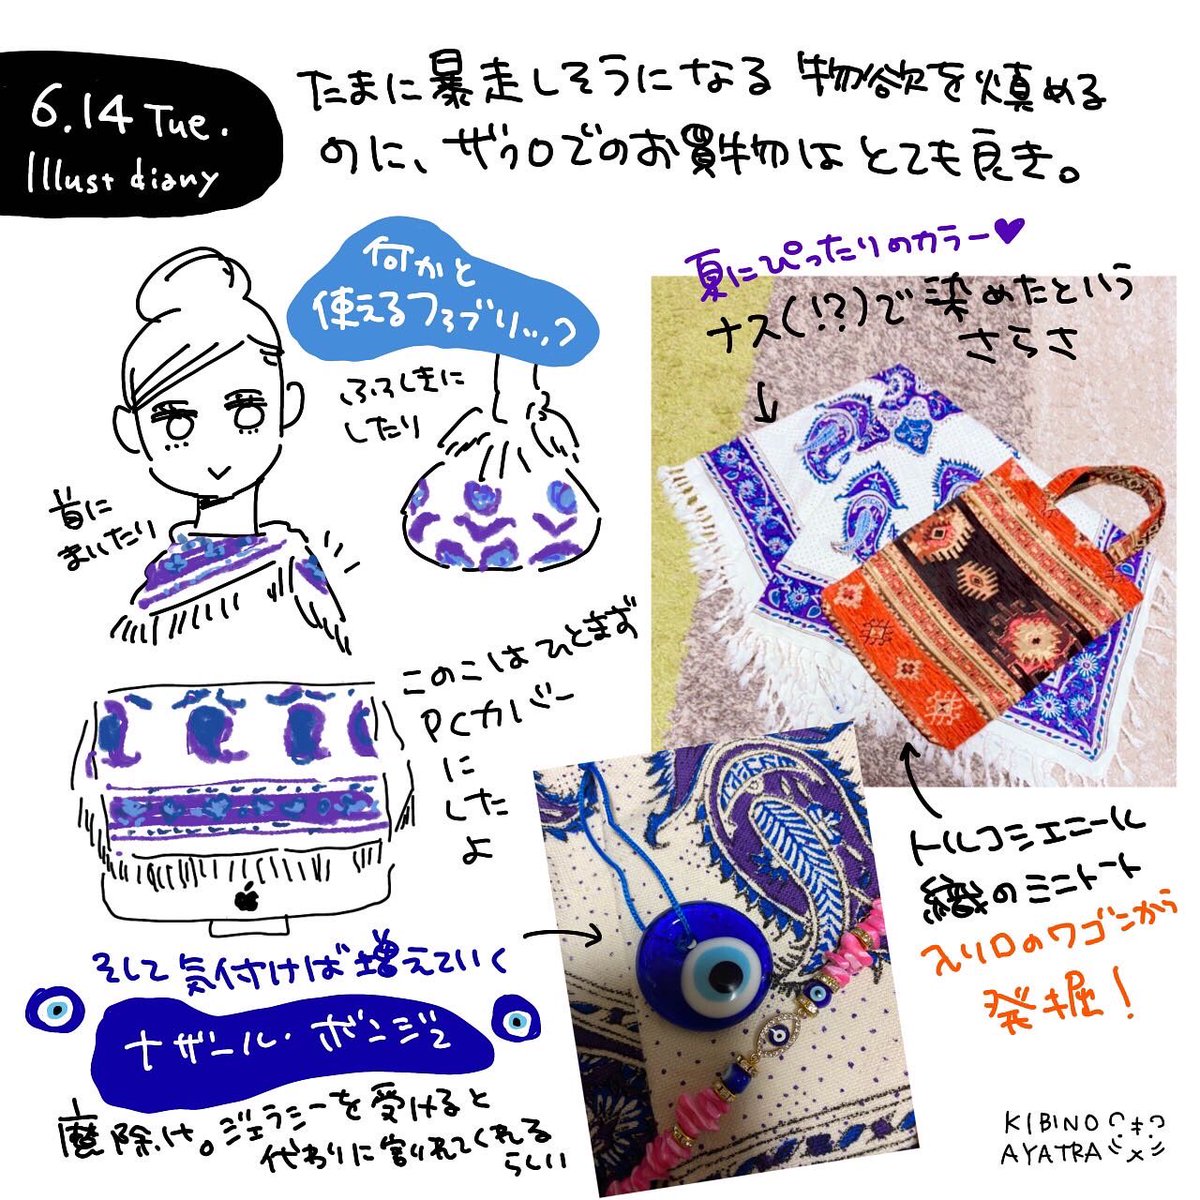 6.14 Tue.
Illust diary
たまに暴走しそうになる 物欲を慎める
のに、ザクロでのお買物は とても良き。
何かと
使えるファブリック
夏にぴったりのカラー♥
ナス(!?)で染めたという
さらさ
ふろしきに
したり
首に
まいたり
このこはひとまず
PCカバー
に
した
よ
トルコシェニール
織のミニトート
入り口のワゴンから
発掘!
そして気付けば増えていく
ナザール・ボンジュ
魔除け。ジェラシーを受けると
代わりに割れてくれる
らしい
KIBINO
AYATRA